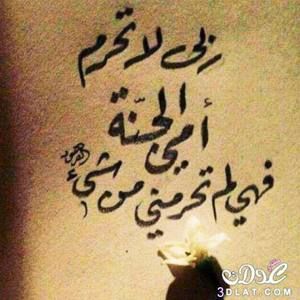 ربي لا تحرم
أمي الجنّة
فهي لم تحرمني من شيء
3DLAT.COM